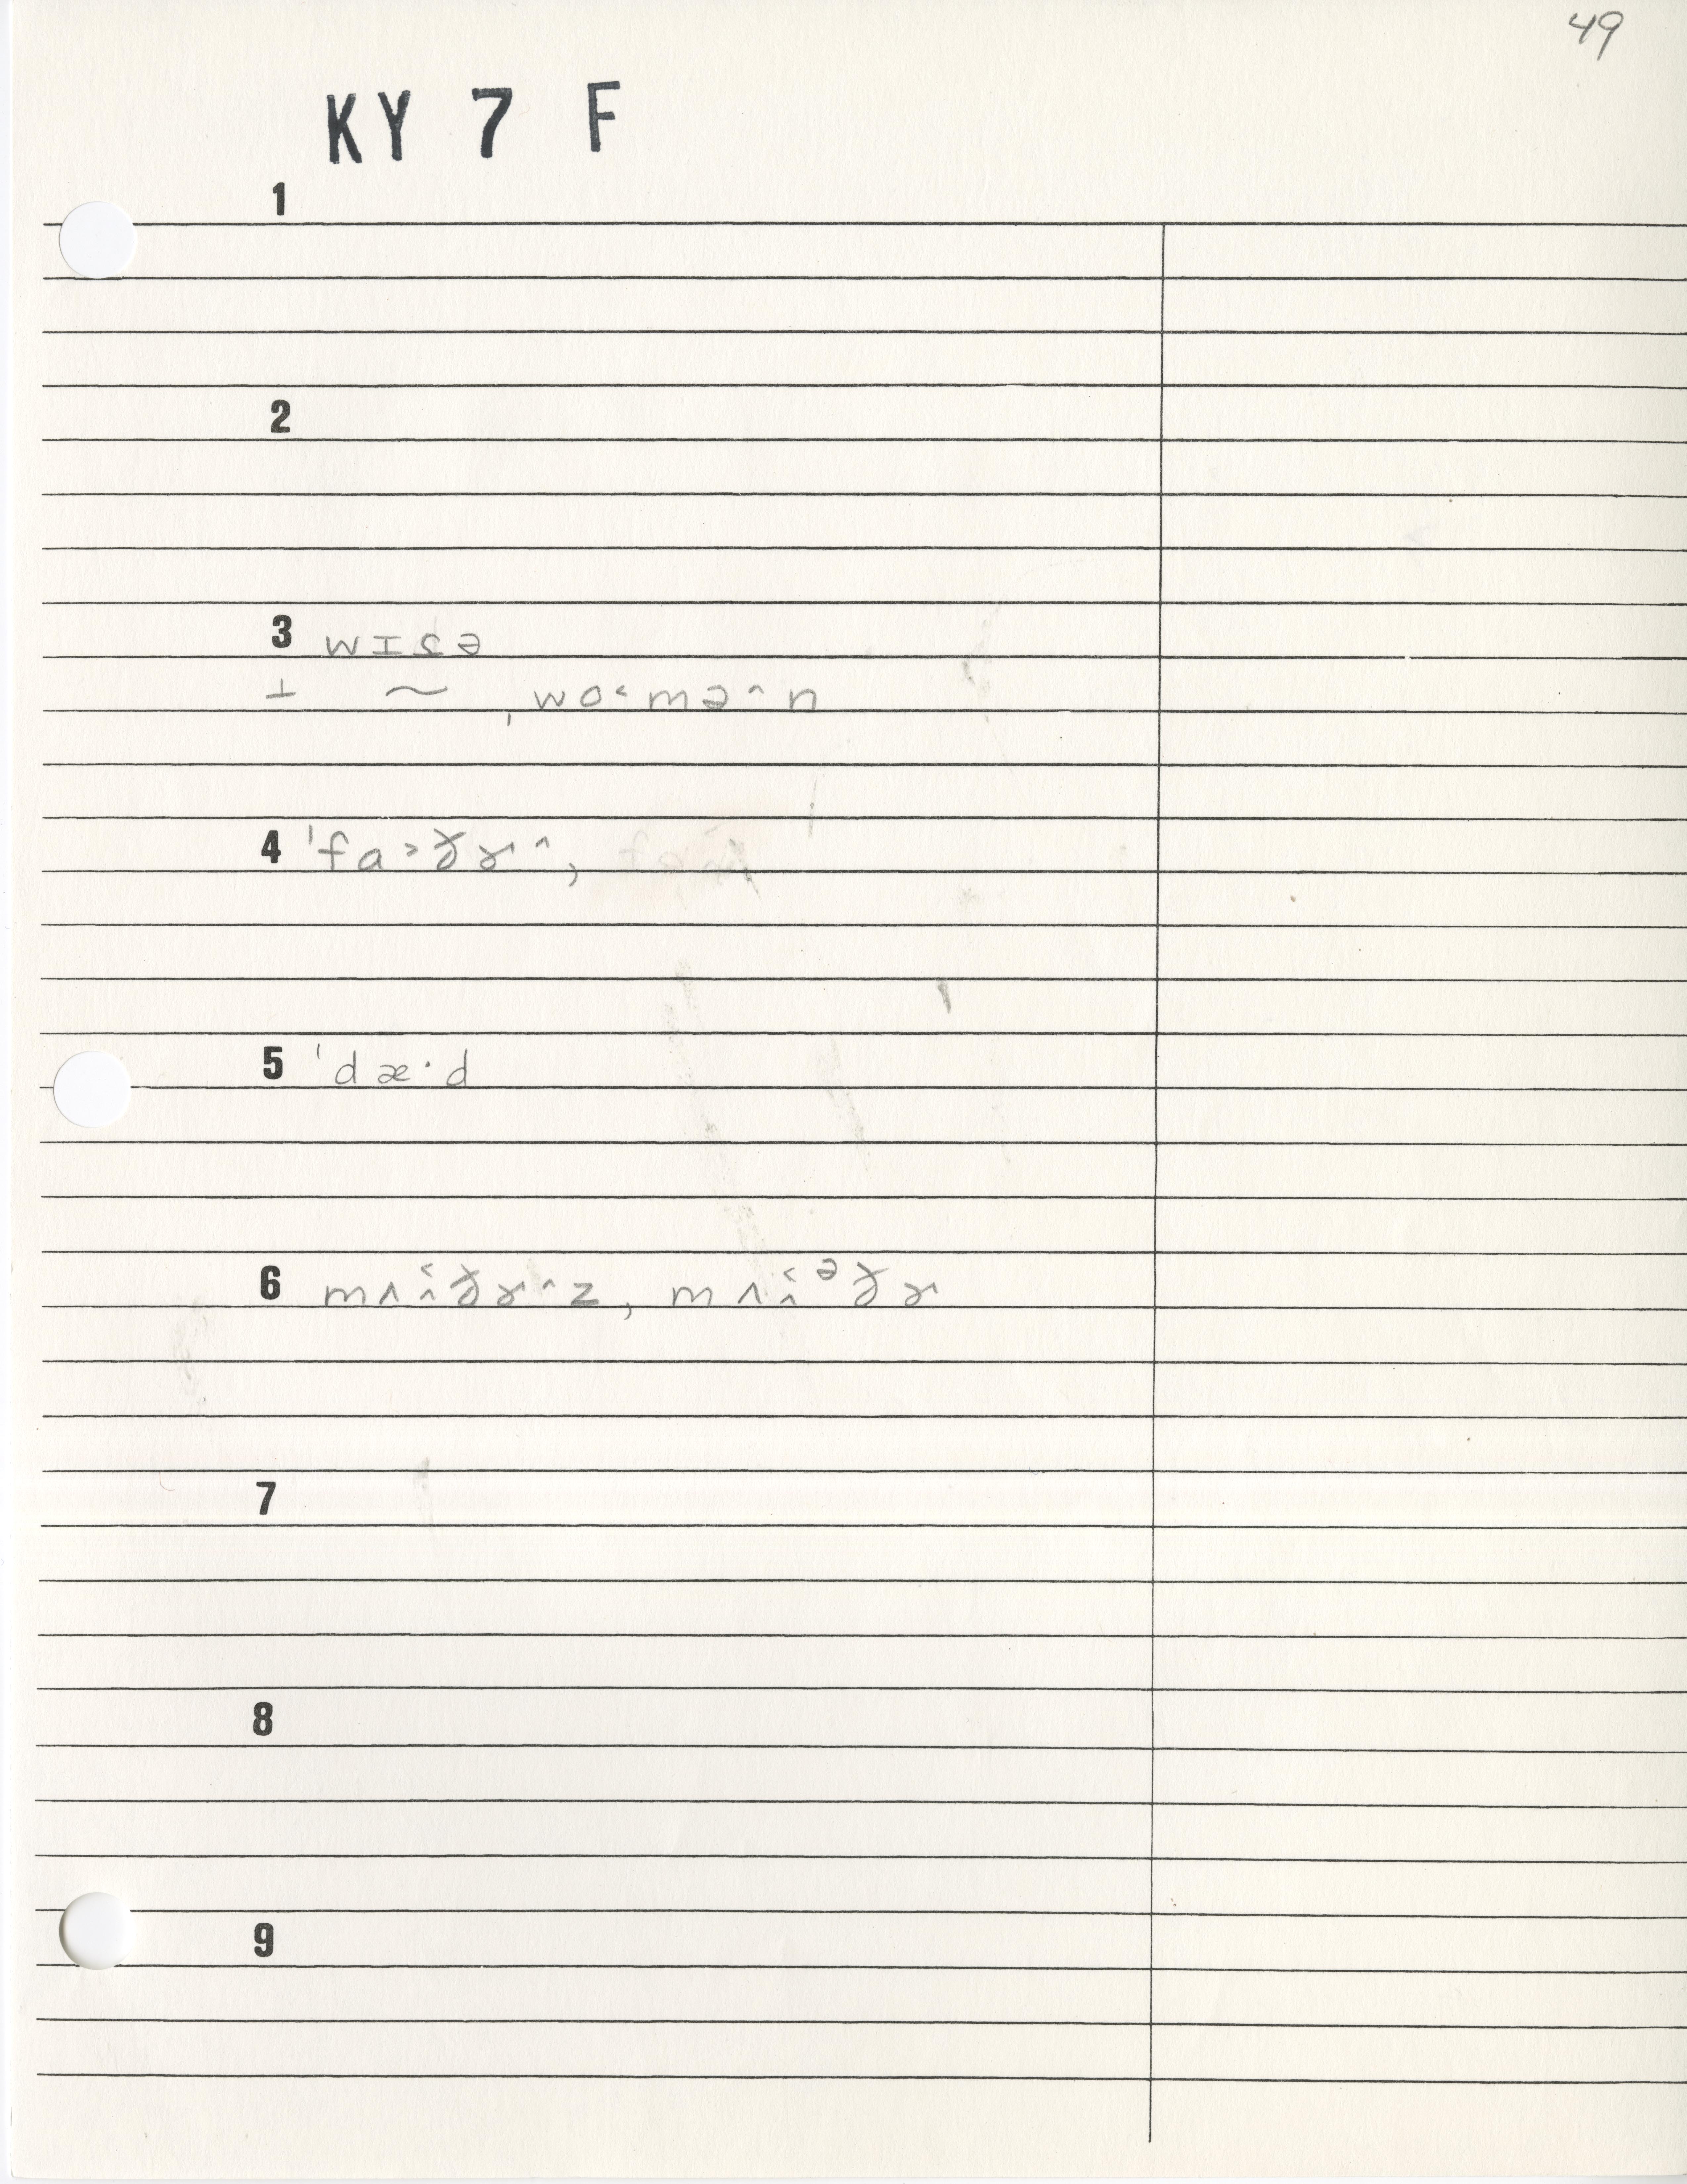 49
KY 7 F
1
2
3 wɪᶊə
⊥ ~ ˌwo˂mə^n
4 ˈfa˃ɤ̵ɚ^,
5 ˈdæ·d
6 mʌi̭˂ɤ̵ɚ^z, mʌi̭˂ᵊɤ̵ɚ
7
8
9